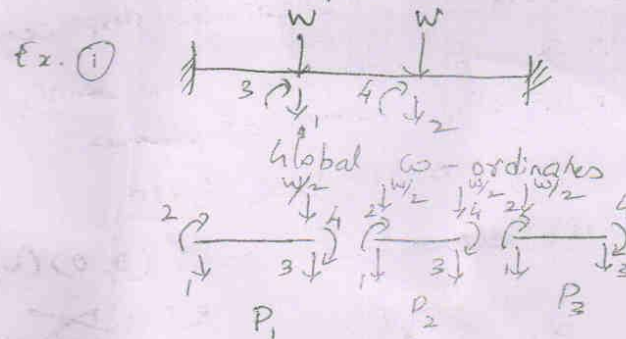 W W
Ex. (i)
3 1 4 2
Global co-ordinates
W/2 W/2 W/2 W/2
2 4 2 4 2 4
1 3 1 3 1 3
P1 P2 P3